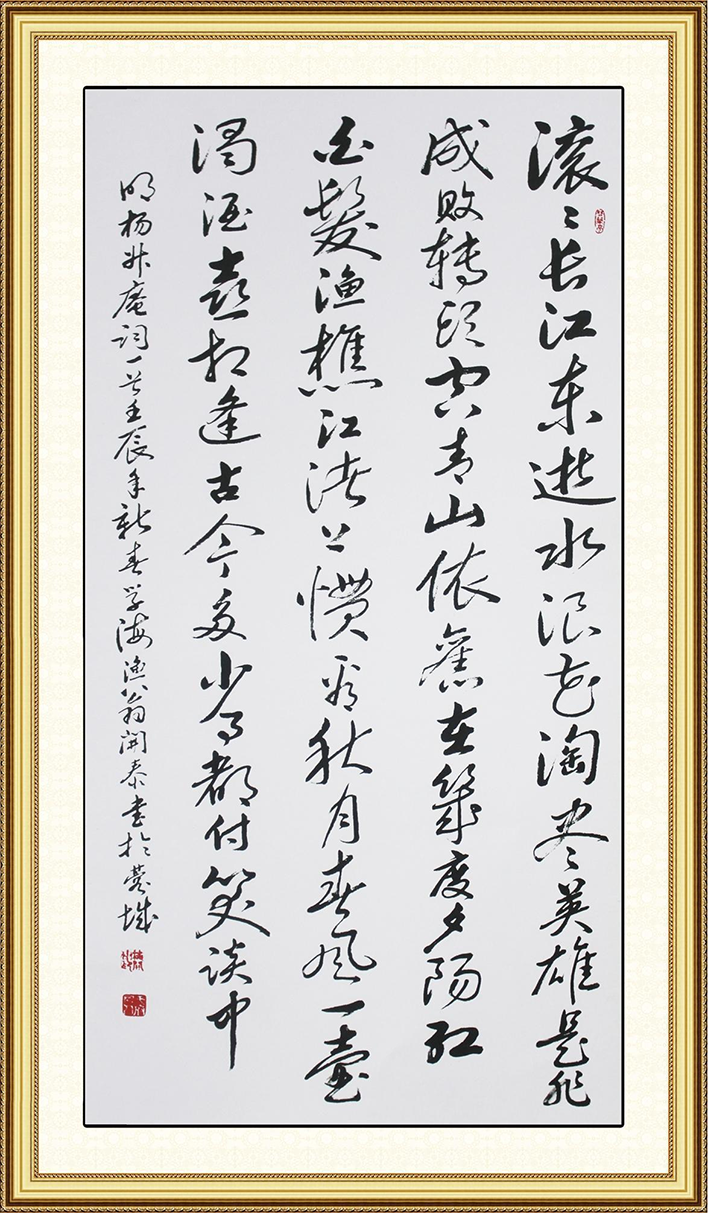 滚〻长江东逝水浪花淘尽英雄是非
成败转头空青山依舊在幾度夕阳红
白髮渔樵江渚上惯看秋月春风一壶
濁酒喜相逢古今多少事都付笑谈中
明杨升庵词一首壬辰年新春学海渔翁開泰书於蓉城